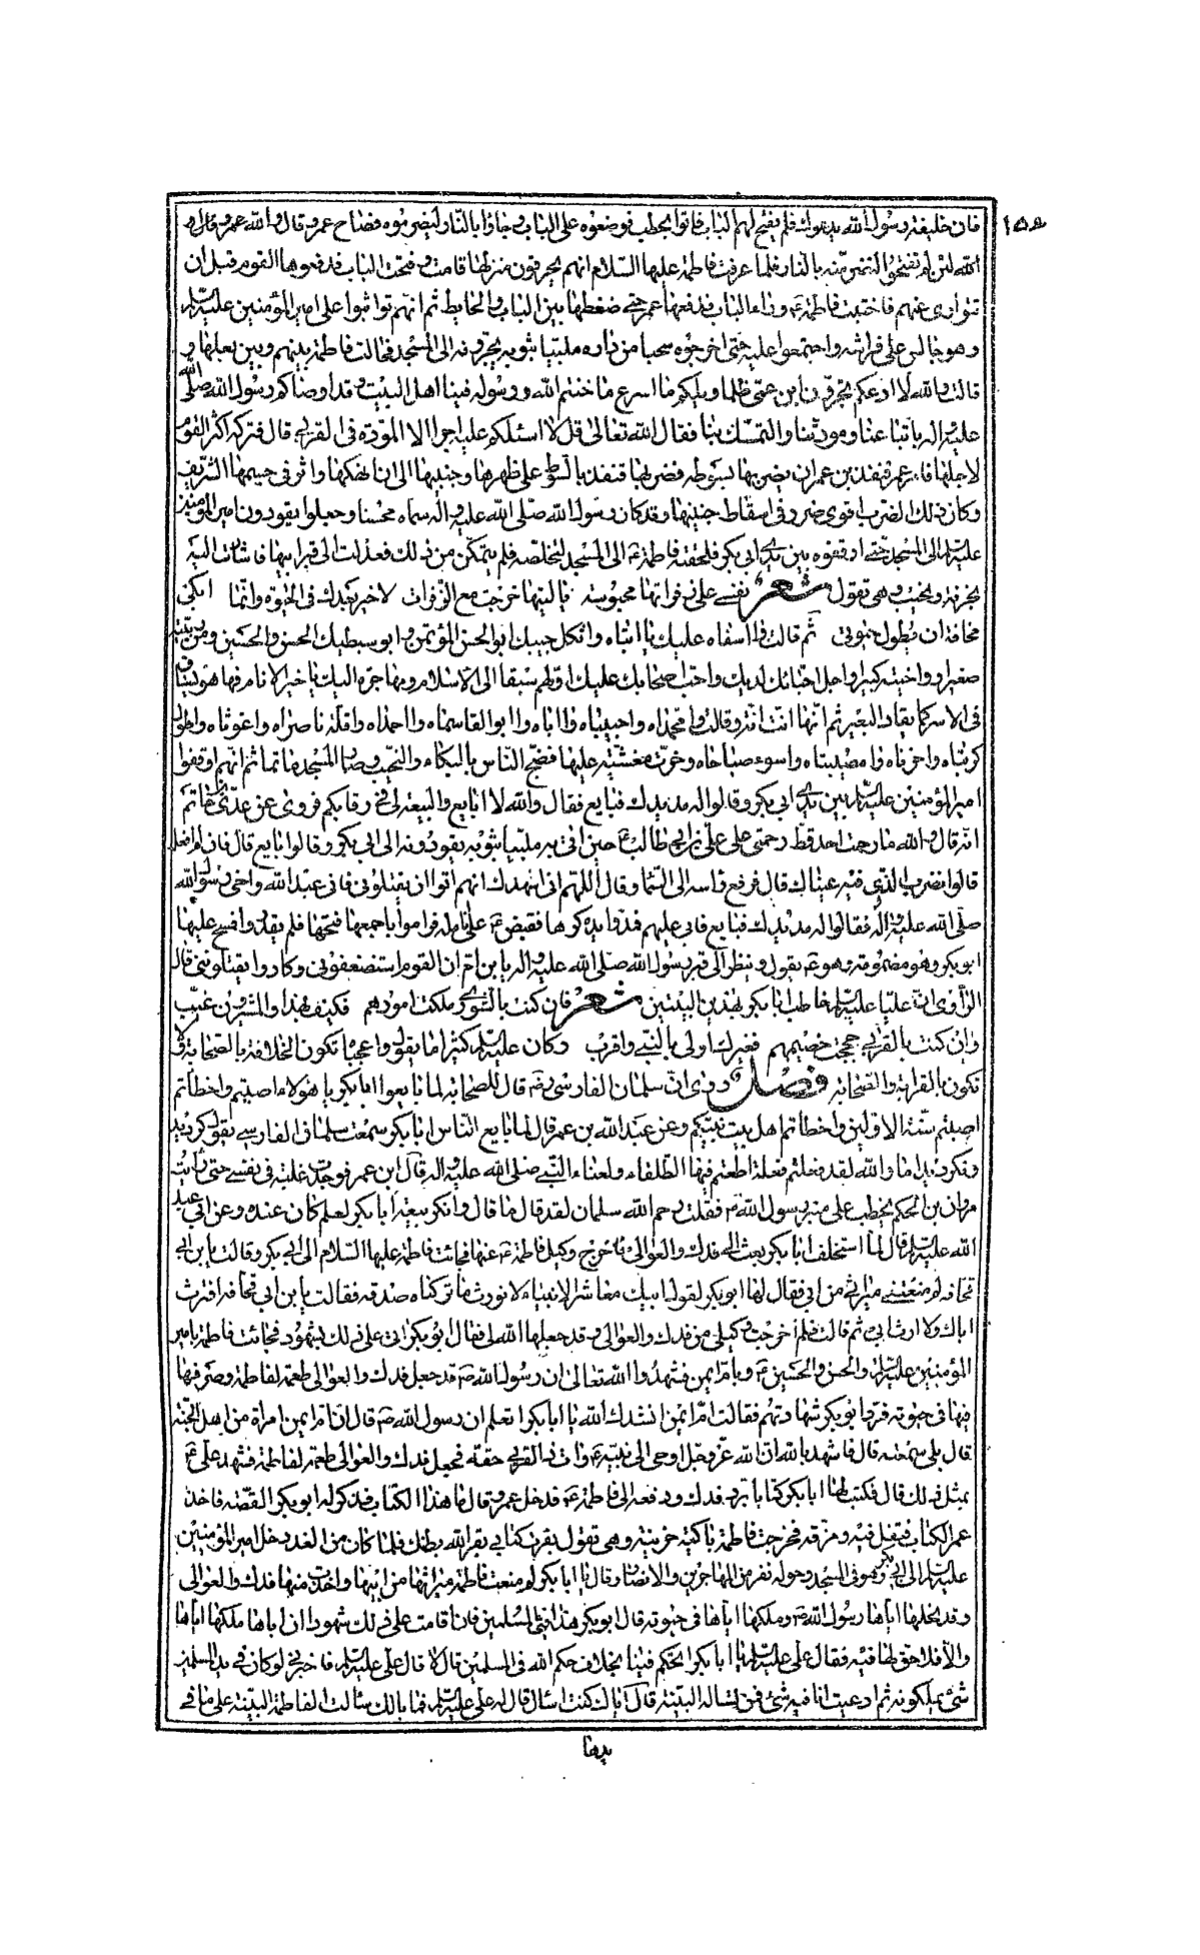 ١٥٨
فان خليفة رسول الله يدعوك فلم يفتح لهم الباب فاتوا بحطب فوضعوه على الباب وجاؤا بالنار ليضرموه فصاح عمر وقال والله
الله لئن لم تفتحوا لنضرمنه بالنار فلما عرفت فاطمة عليها السلام انهم يحرقون منزلها قامت وفتحت الباب فدفعوها القوم قبل ان
تتوارى عنهم فاختبت فاطمة ع وراء الباب فدفعها عمر حتى ضغطها بين الباب والحايط ثم انهم تواثبوا على امير المؤمنين عليه السلام
وهو جالس على فراشه واجتمعوا عليه حتى اخرجوه سحبا من داره ملببا بثوبه يجرونه الى المسجد فحالت فاطمة بينهم وبين بعلها و
قالت والله لا ادعكم تجرون ابن عمي ظلما ويلكم ما اسرع ما خنتم الله ورسوله فينا اهل البيت وقد اوصاكم رسول الله صلى الله
عليه واله باتباعنا ومودتنا والتمسك بنا فقال الله تعالى قل لا اسئلكم عليه اجرا الا المودة في القربى قال فتركه اكثر القوم
لاجلها فامر عمر قنفذ بن عمران يضربها بسوطه فضربها قنفذ بالسوط على ظهرها وجنبيها الى ان انهكها واثر في جسمها الشريف
وكان ذلك الضرب اقوى ضرر في اسقاط جنينها وقد كان رسول الله صلى الله عليه واله سماه محسنا وجعلوا يقودون امير المؤمنين
عليه السلام الى المسجد حتى اوقفوه بين يدي ابي بكر فلحقته فاطمة ع الى المسجد لتخلصه فلم يتمكن من ذلك فعدلت الى قبر ابيها فاشارت اليه
بحرقة ونحيب وهي تقول شعر نفسي على زفراتها محبوسة يا ليتها خرجت مع الزفرات لا خير بعدك في الحيوة وانما ابكي
مخافة ان تطول حيوتي ثم قالت وا اسفاه عليك يا ابتاه واثكل حبيبك ابو الحسن المؤتمن وابو سبطيك الحسن والحسين ومن ربيته
صغيرا وواخيته كبيرا واجل احبائك لديك واحب اصحابك عليك اولهم سبقا الى الاسلام ومهاجرة اليك يا خير الانام فها هو يساق
في الاسر كما يقاد البعير ثم انها انت انة وقالت وا محمداه وا حبيباه وا اباه وا ابو القاسماه وا احمداه وا قلة ناصراه وا غوثاه وا طول
كربتاه وا حزناه وا مصيبتاه وا سوء صباحاه وخرت مغشية عليها فضج الناس بالبكاء والنحيب وصار المسجد ماتما ثم انهم اوقفوا
امير المؤمنين عليه السلام بين يدي ابي بكر وقالوا له مد يدك فبايع فقال والله لا ابايع والبيعة لي في رقابكم فروى عن عدي بن حاتم
انه قال والله ما رحمت احد قط رحمتي على علي بن ابي طالب ع حين اتي به ملببا بثوبه يقودونه الى ابي بكر وقالوا بايع قال فان لم افعل
قالوا نضرب الذي فيه عيناك قال فرفع راسه الى السماء وقال اللهم اني اشهدك انهم اتوا ان يقتلوني فاني عبد الله واخي رسول الله
صلى الله عليه واله فقالوا له مد يدك فبايع فابى عليهم فمدوا يده كرها فقبض ع على انامله فراموا باجمعها فتحها فلم يقدروا فمسح عليها
ابو بكر وهو مضمومة وهو ع يقول وينظر الى قبر رسول الله صلى الله عليه واله يا بن ام ان القوم استضعفوني وكادوا يقتلونني قال
الراوي ان عليا عليه السلام خاطب ابا بكر بهذين البيتين شعر فان كنت بالشورى ملكت امورهم فكيف بهذا والمشيرون غيب
وان كنت بالقربى حججت خصيمهم فغيرك اولى بالنبي واقرب وكان عليه السلام كثيرا ما يقول واعجبا تكون الخلافة بالصحابة ولا
تكون بالقرابة والصحابة فصل وروى ان سلمان الفارسي رض قال للصحابة لما بايعوا ابا بكر يا هؤلاء اصبتم واخطأتم
اصبتم سنة الاولين واخطاتم اهل بيت نبيكم وعن عبد الله بن عمر قال لما بايع الناس ابا بكر سمعت سلمان الفارسي يقول كرديد
ونكرديد اما والله لقد فعلتم فعلة اطعتم فيها الطلقاء ولعناء النبي صلى الله عليه واله قال ابن عمر فوجدت عليه في نفسي حتى رأيت
مروان بن الحكم يخطب على منبر رسول الله ص فقلت رحم الله سلمان لقد قال ما قال وانكر بيعة ابا بكر لعلم كان عنده وعن ابي عبد
الله عليه السلام قال لما استخلف ابا بكر بعث الى فدك والعوالي فاخرج وكيل فاطمة ع عنها فجائت فاطمة عليها السلام الى ابي بكر وقالت يا بن ابي
قحافة لم منعتني ميراثي من ابي فقال لها ابو بكر لقول ابيك معاشر الانبياء لا نورث ما تركناه صدقة فقالت يا بن ابي قحافة افترث
اباك ولا ارث ابي ثم قالت فلم اخرجت وكيلي من فدك والعوالي وقد جعلها الله لي فقال ابو بكر ائتي على ذلك بشهود فجائت فاطمة بامير
المؤمنين عليه السلام والحسن والحسين ع وبام ايمن فشهدوا الله تعالى ان رسول الله ص قد جعل فدك والعوالي طعمة لفاطمة وصرفها
فيها في حيوته فرد ابو بكر شهادتهم فقالت ام ايمن انشدك الله يا ابا بكر اتعلم ان رسول الله ص قال ان ام ايمن امرأة من اهل الجنة
قال بلى سمعته قال فاشهد بالله ان الله عز وجل اوحى الى نبيه ص وآت ذا القربى حقه فجعل فدك والعوالي طعمة لفاطمة فشهد علي ع
بمثل ذلك قال فكتب لها ابا بكر كتابا برد فدك ودفعه الى فاطمة ع فدخل عمر وقال ما هذا الكتاب فذكر له ابو بكر القصة فاخذ
عمر الكتاب فتفل فيه ومزقه فخرجت فاطمة باكية حزينة وهي تقول بقرت كتابي بقر الله بطنك فلما كان من الغد دخل امير المؤمنين
عليه السلام الى ابي بكر وهو في المسجد وحوله نفر من المهاجرين والانصار وقال يا ابا بكر لم منعت فاطمة ميراثها من ابيها واخذت منها فدك والعوالي
وقد نحلها اباها رسول الله ص وملكها اباها في حيوته قال ابو بكر هذا فيئ المسلمين فان اقامت على ذلك شهودا ان اباها ملكها اياها
والا فلا حق لها فيه فقال علي عليه السلام يا ابا بكر اتحكم فينا بخلاف حكم الله في المسلمين قال لا قال علي عليه السلام فاخبرني لو كان في يد المسلمين
شيئ يملكونه ثم ادعيت انا فيه شيئ فمن تساله البينة قال اياك كنت اسال قال له علي عليه السلام فما بالك سالت الفاطمة البينة على ما في
يدها